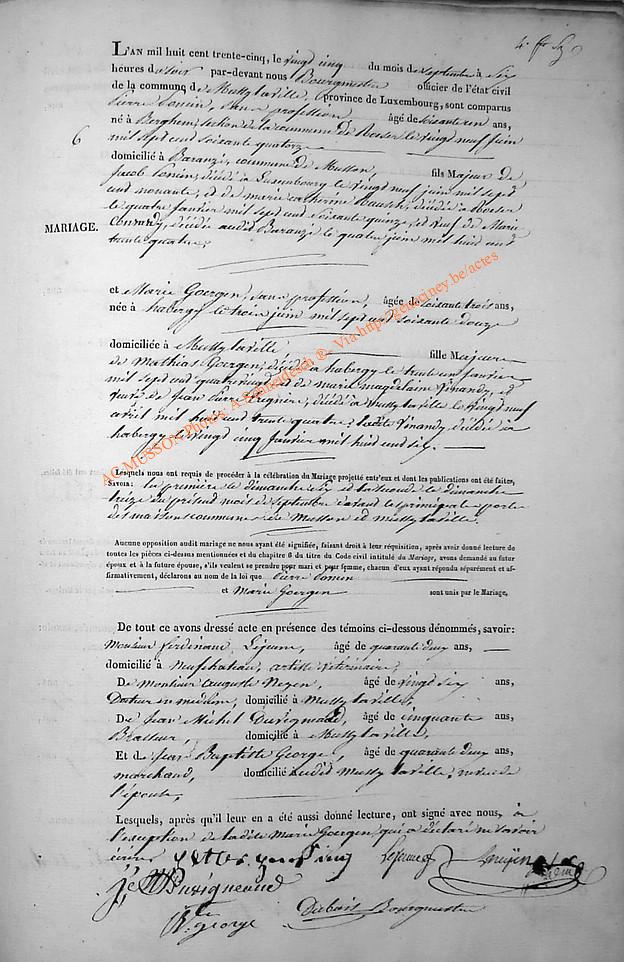 L'AN mil huit cent trente-cinq, le vingt cinq du mois de septembre à six
heures du soir par-devant nous Bourgmestre officier de l'état civil
de la commune de Mussy la ville, province de Luxembourg, sont comparus
Pierre sans profession, âgé de soixante un ans,
né à Berghem, section de la commune de Roeser le vingt neuf juin
6
mil sept cent soixante quatorze
domicilié à Baranzy, commune de Musson, fils Majeur de
Jacob décédé à Luxembourg le vingt neuf juin mil sept
cent nonante, et de marie catherine décédée à Roeser
le quatre janvier mil sept cent soixante quinze, et veuf de Marie
MARIAGE.
décédée audit Baranzy le quatre juin mil huit cent
trente quatre;
et Marie Goergen, sans profession, âgée de soixante trois ans,
née à habergy le trois juin mil sept cent soixante douze
domiciliée à Mussy la ville fille Majeure
de Mathias Goergen, décédé à habergy le trente un janvier
mil sept cent quatre vingt, et de marie magdelaine Vinandy, et
veuve de Jean Pierre décédé à Mussy la ville le vingt neuf
avril mil huit cent trente quatre; ladite Vinandy décédée à
habergy le vingt cinq janvier mil huit cent six.
Lesquels nous ont requis de procéder à la célébration du Mariage projetté entr'eux et dont les publications ont été faites,
SAVOIR: la première le dimanche six et la seconde le dimanche
treize du présent mois de septembre devant la principale porte
des maisons communes de Musson et mussy la ville.
Aucune opposition audit mariage ne nous ayant été signifiée, faisant droit à leur réquisition, après avoir donné lecture de
toutes les pièces ci-dessus mentionnées et du chapitre 6 du titre du Code civil intitulé du Mariage, avons demandé au futur
époux et à la future épouse, s'ils veulent se prendre pour mari et pour femme, chacun d'eux ayant répondu séparément et af-
firmativement, déclarons au nom de la loi que Pierre
et Marie Goergen sont unis par le Mariage,
De tout ce avons dressé acte en présence des témoins ci-dessous dénommés, savoir:
Monsieur ferdinand Lejeune, âgé de quarante deux ans,
domicilié à Neufchateau, artiste vétérinaire;
De Monsieur auguste Neyen, âgé de vingt six ans,
Docteur en médecine, domicilié à Mussy la ville;
De Jean Michel Duvigneaud, âgé de cinquante ans,
Brasseur, domicilié à Mussy la ville,
Et de Jean Baptiste George, âgé de quarante deux ans,
marchand, domicilié audit Mussy la ville, neveu de
l'épouse;
Lesquels, après qu'il leur en a été aussi donné lecture, ont signé avec nous, à
l'exception de ladite Marie Goergen, qui a déclaré ne savoir
écrire
Lejeune
J. M. Duvigneaud
George Bourgmestre
AC MUSSON Photos: A Schnadesch ® - Via http://geneciney.be/actes